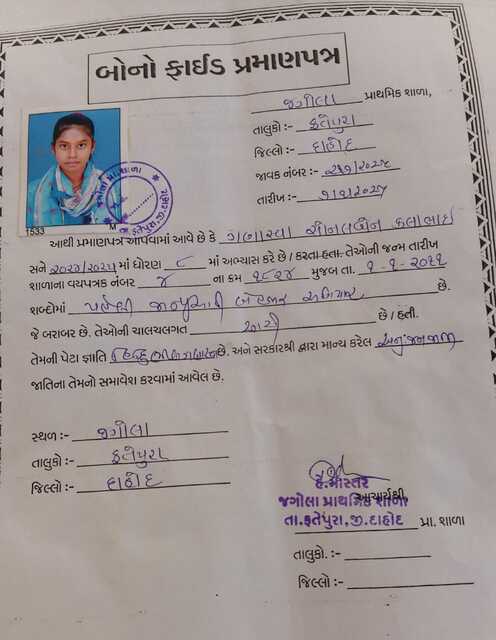 બોનો ફાઈડ પ્રમાણપત્ર
જગોલા પ્રાથમિક શાળા,
તાલુકો :- ફતેપુરા
જિલ્લો :- દાહોદ
જાવક નંબર :-
તારીખ :-
1533
આથી પ્રમાણપત્ર આપવામાં આવે છે કે ગણાસવા સોનલબેન કલાભાઈ
સને ૨૦૨૪/૨૦૨૫ માં ધોરણ ૮ માં અભ્યાસ કરે છે / કરતા હતા. તેઓની જન્મ તારીખ
શાળાના વયપત્રક નંબર ૪ ના ક્રમ ૧૮૨૪ મુજબ તા. ૧-૧-૨૦૧૧
શબ્દોમાં પહેલી જાન્યુઆરી બે હજાર અગિયાર છે.
જે બરાબર છે. તેઓની ચાલચલગત સારી છે / હતી.
તેમની પેટા જ્ઞાતિ હિન્દુ છે. અને સરકારશ્રી દ્વારા માન્ય કરેલ અનુ.જનજાતિ
જાતિના તેમનો સમાવેશ કરવામાં આવેલ છે.
સ્થળ :- જગોલા
તાલુકો :- ફતેપુરા
જિલ્લો :- દાહોદ
હે.માસ્તર
આચાર્યશ્રી,
જગોલા પ્રાથમિક શાળા
તા.ફતેપુરા,જી.દાહોદ પ્રા. શાળા
તાલુકો. :-
જિલ્લો :-